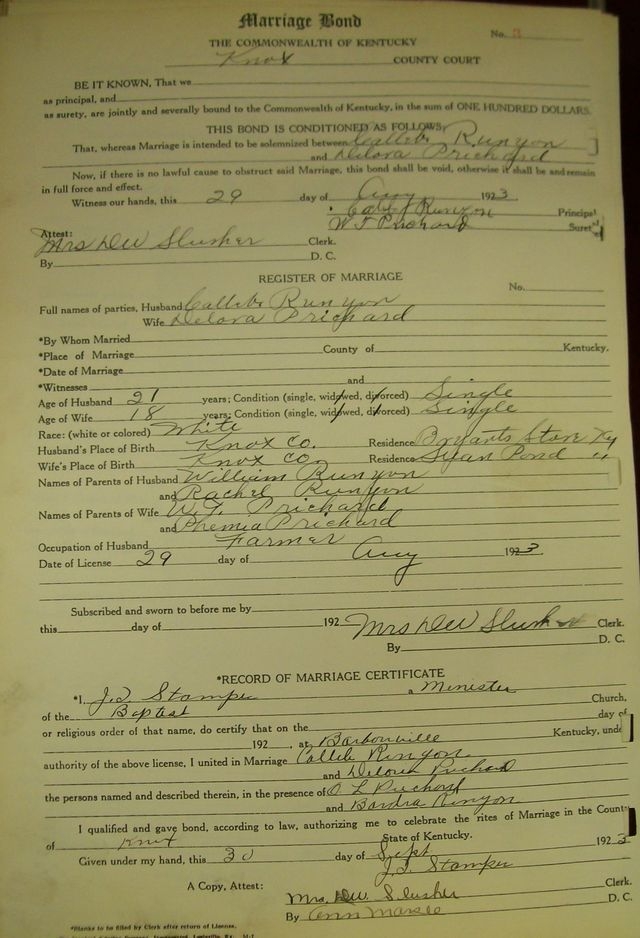 Marriage Bond
No. 3
THE COMMONWEALTH OF KENTUCKY
Knox COUNTY COURT
BE IT KNOWN, That we
as principal, and
as surety, are jointly and severally bound to the Commonwealth of Kentucky, in the sum of ONE HUNDRED DOLLARS.
THIS BOND IS CONDITIONED AS FOLLOWS:
That, whereas Marriage is intended to be solemnized between Callib Runyon
and Delora Prichard
Now, if there is no lawful cause to obstruct said Marriage, this bond shall be void, otherwise it shall be and remain
in full force and effect.
Witness our hands, this 29 day of Aug 1923
Runyon Principal
W T Prichard Surety
Attest:
Mrs DW Slusher Clerk.
By D. C.
REGISTER OF MARRIAGE
No.
Full names of parties, Husband Callib Runyon
Wife Delora Prichard
*By Whom Married
*Place of Marriage County of Kentucky.
*Date of Marriage
*Witnesses and
Age of Husband 21 years; Condition (single, widowed, divorced) Single
Age of Wife 18 years; Condition (single, widowed, divorced) Single
Race: (white or colored) White
Husband's Place of Birth Knox Co. Residence Bryants Store Ky
Wife's Place of Birth Knox Co. Residence Swan Pond "
Names of Parents of Husband William Runyon
and Rachel Runyon
Names of Parents of Wife W.T. Prichard
and Phemia Prichard
Occupation of Husband Farmer
Date of License 29 day of Aug 1923
Subscribed and sworn to before me by
this day of 192 Mrs DW Slusher Clerk.
By D. C.
*RECORD OF MARRIAGE CERTIFICATE
*I, J.T. Stamper a Minister
of the Baptist Church,
or religious order of that name, do certify that on the day of
192 , at Barbourville Kentucky, under
authority of the above license, I united in Marriage Callib Runyon
and Delora Prichard
the persons named and described therein, in the presence of O L Prichard
and Runyon
I qualified and gave bond, according to law, authorizing me to celebrate the rites of Marriage in the County
of Knox State of Kentucky.
Given under my hand, this 30 day of Sept 1923
J.T. Stamper
A Copy, Attest:
Mrs. DW Slusher Clerk.
By Ann D. C.
*Blanks to be filled by Clerk after return of License.